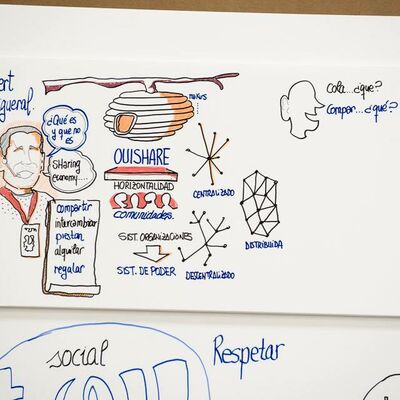 ert
gueral.
¿Qué es
y que no
es
SHaring
economy....
compartir
intercambiar
prestar
alquilar
regalar
OUISHARE
HORIZONTALIDAD
comunidades.
SIST. ORGANIZACIONES
SIST. DE PODER
CENTRALIZADO
DESCENTRALIZADO
DISTRIBUIDA
Cola...¿que?
Compar...¿qué?
social
Respetar